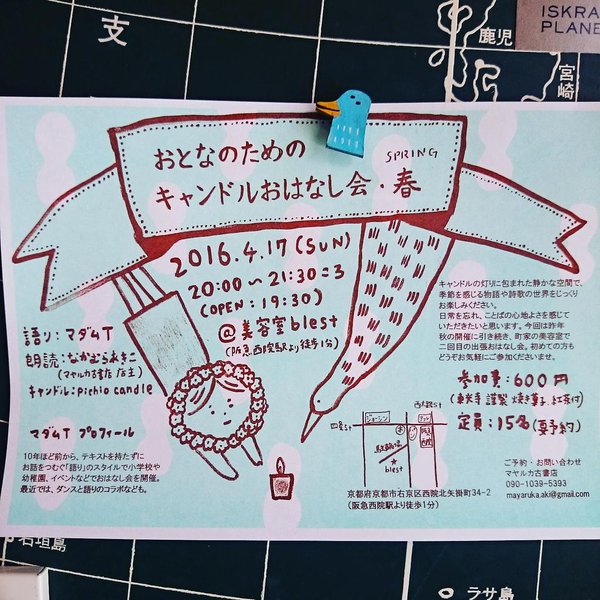 ISKRA
PLANE
支
鹿児
宮崎
おとなのための
SPRING
キャンドルおはなし会・春
2016.4.17(SUN)
20:00〜21:30ころ
(OPEN:19:30)
@美容室blest
(阪急西院駅より徒歩1分)
語り:マダムT
朗読:なかむらあきこ
(マヤルカ古書店 店主)
キャンドル:pichio candle
マダムT プロフィール
10年ほど前から、テキストを持たずに
お話をつむぐ「語り」のスタイルで小学校や
幼稚園、イベントなどでおはなし会を開催。
最近では、ダンスと語りのコラボなども。
キャンドルの灯りに包まれた静かな空間で、
季節を感じる物語や詩歌の世界をじっくり
お楽しみください。
日常を忘れ、ことばの心地よさを感じて
いただきたいと思います。今回は昨年
秋の開催に引き続き、町家の美容室で
二回目の出張おはなし会。初めての方も
どうぞお気軽にご参加くださいませ。
参加費:600円
焼き菓子、紅茶付)
定員:15名(要予約)
西大路st
四条st
ジョーシン
駐輪場
★
blest
京都府京都市右京区西院北矢掛町34-2
(阪急西院駅より徒歩1分)
ご予約・お問い合わせ
マヤルカ古書店
090-1039-5393
mayaruka.aki@gmail.com
石垣島
ラサ島